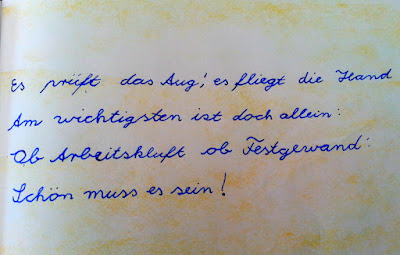 Es prüft das Aug', es fliegt die Hand
Am wichtigsten ist doch allein:
Ob Arbeitskluft ob Festgewand:
Schön muss es sein!